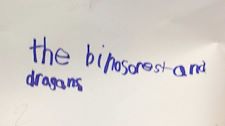 the binosorest and
dragans